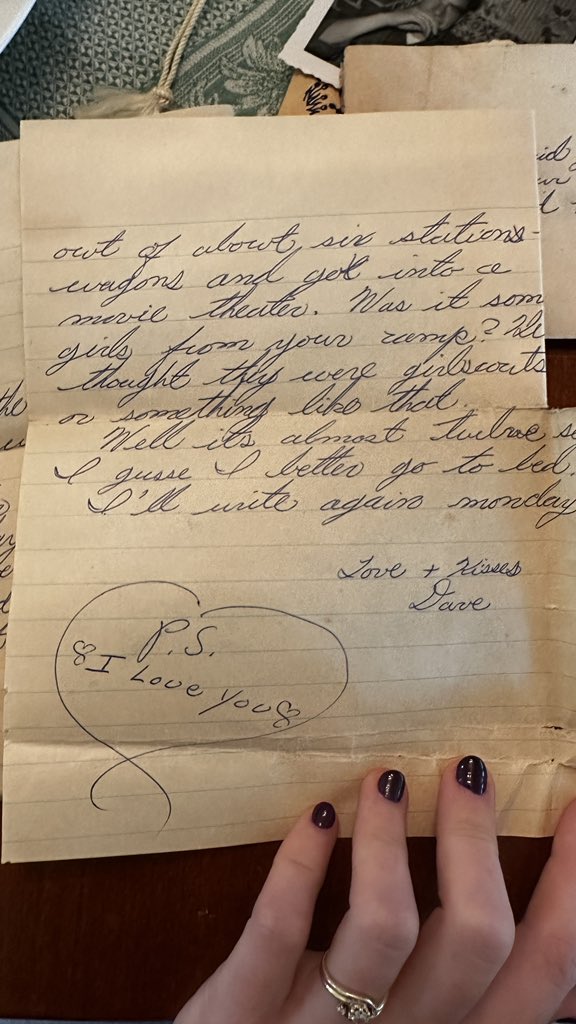 out of about six stations-
wagons and got into a
movie theater. Was it som
girls from your camp? He
thought they were girlscouts
or something like that.
Well its almost twelve s
I gusse I better go to bed.
I'll write again monday
Love + Kisses
Dave
P.S.
I Love You
he
id